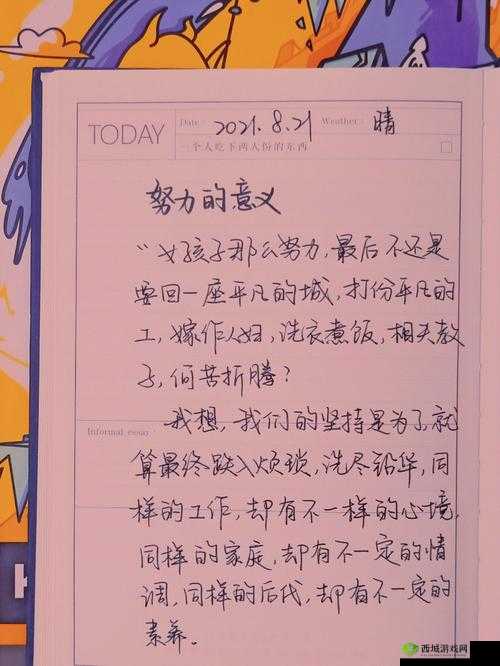 TODAY
Date: 2021.8.21 Weather: 晴
一个人吃下两人份的东西
努力的意义
“女孩子那么努力,最后不还是
要回一座平凡的城,打份平凡的
工,嫁作人妇,洗衣煮饭,相夫教
子,何苦折腾?
Informal essay:
我想,我们的坚持是为了就
算最终跌入烦琐,洗尽铅华,同
样的工作,却有不一样的心境,
同样的家庭,却有不一定的情
调,同样的后代,却有不一定的
素养.
西城游戏网